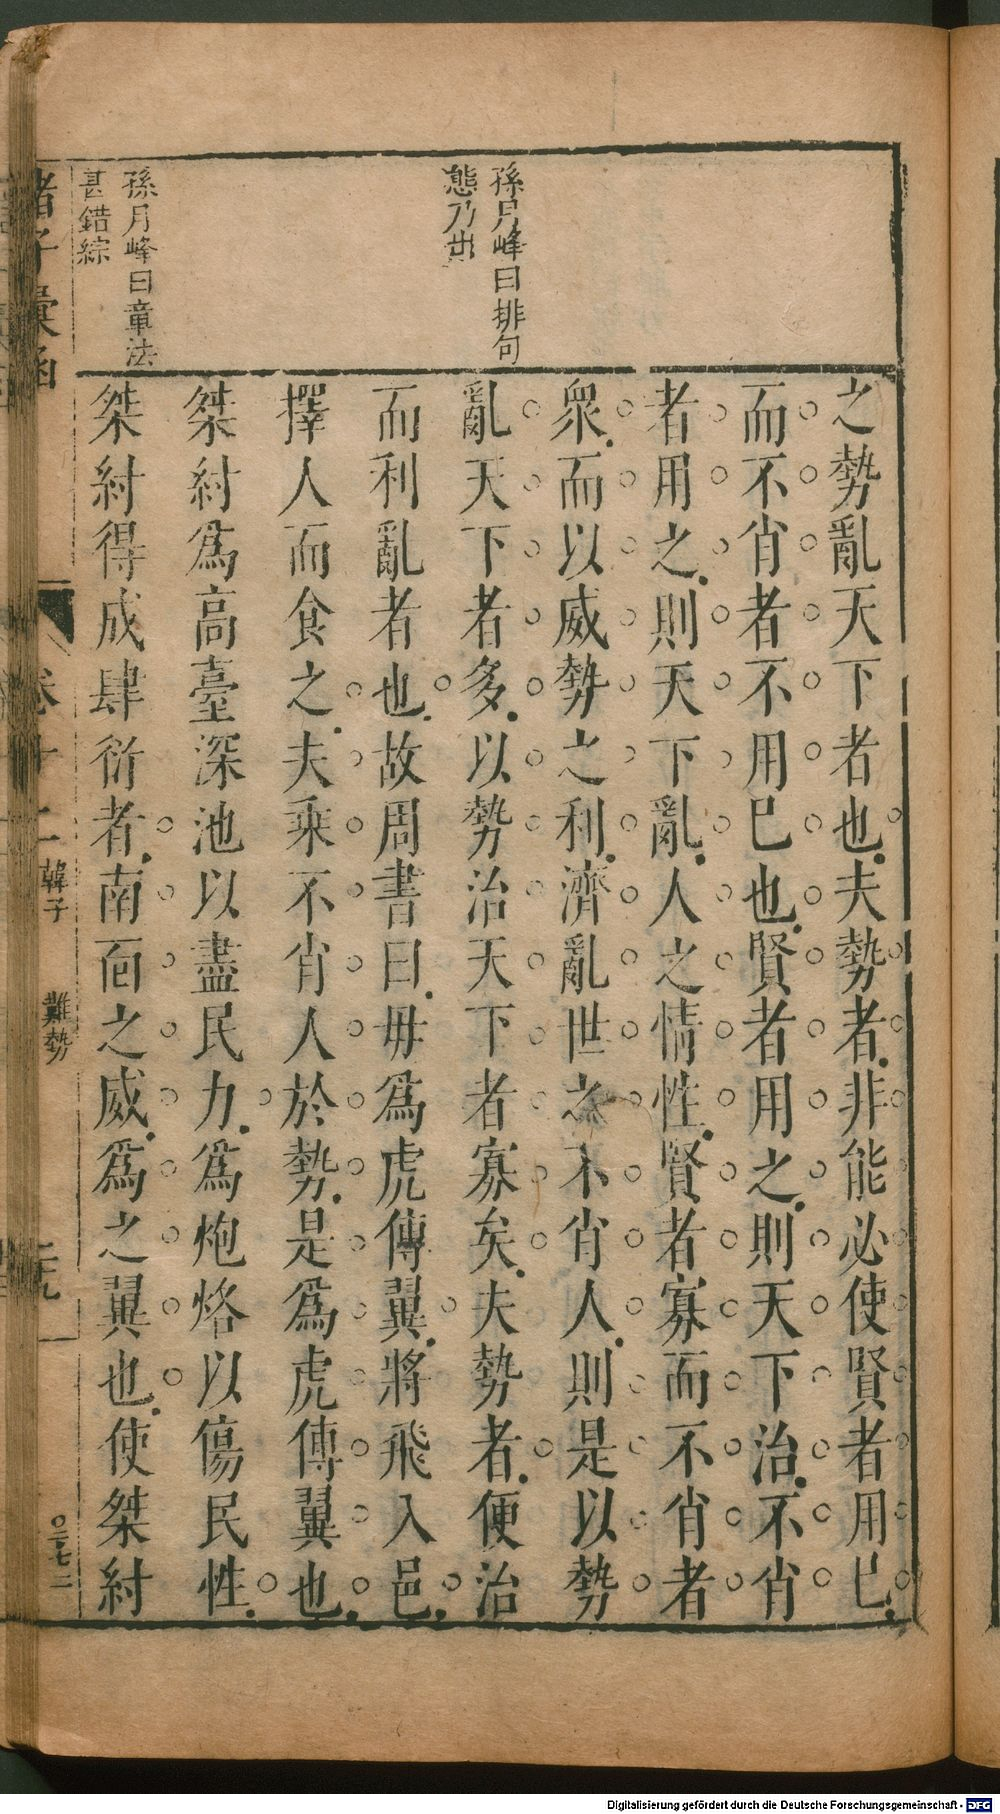 孫月峰曰排句
態乃出
孫月峰曰章法
甚錯綜
之勢亂天下者也夫勢者非能必使賢者用已
而不肖者不用已也賢者用之則天下治不肖
者用之則天下亂人之情性賢者寡而不肖者
眾而以威勢之利濟亂世之不肖人則是以勢
亂天下者多以勢治天下者寡矣夫勢者便治
而利亂者也故周書曰毋爲虎傅翼將飛入邑
擇人而食之夫乘不肖人於勢是爲虎傅翼也
桀紂爲高臺深池以盡民力爲炮烙以傷民性
桀紂得成肆行者南面之威爲之翼也使桀紂
諸子彙函
卷十二
韓子
難勢
二十九
Digitalisierung gefördert durch die Deutsche Forschungsgemeinschaft - DFG